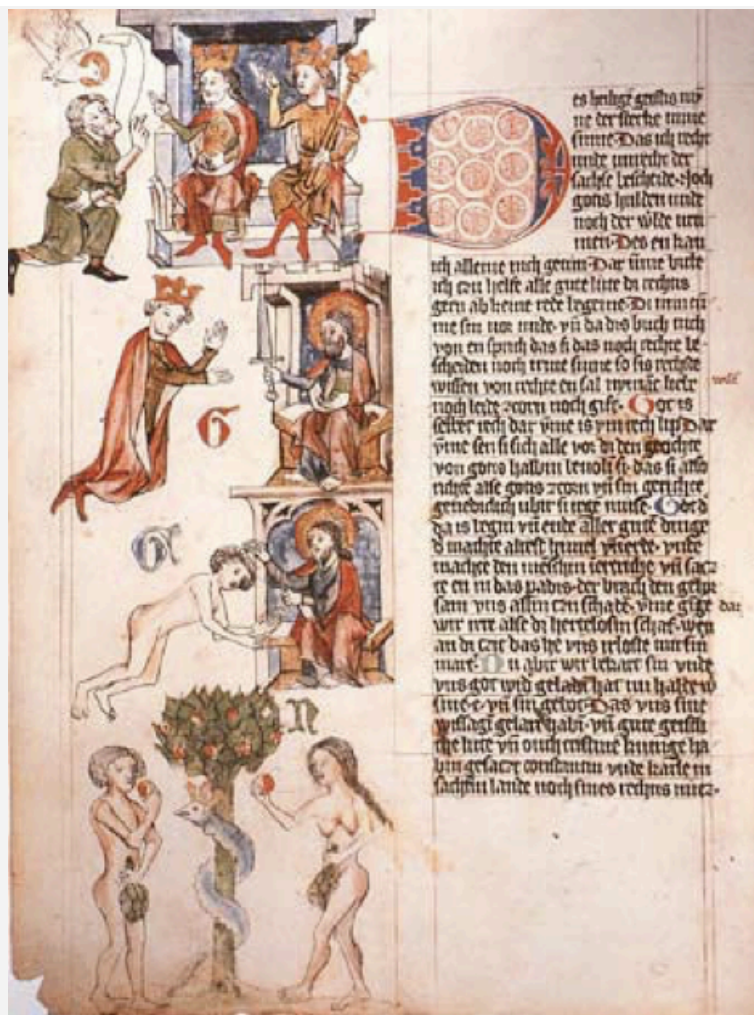 es heilige geistis myn
ne der sterke mine
sinne. Das ich recht
unde unrecht der
sachse bescheide. Noch
gotis hulden unde
noch der w̾lde vru
men. Des en kan
ich alleine nich getun. Dar ūme bitte
ich czu helfe alle gute lute di rechtis
gern ab keine rede kegene. Di min tū
me sin vor mide. vn̄ da dis buch nich
von en sprich das si das noch rechte be
scheiden noch irme sinne so sis rechtis
wissen von rechte en sal nymāt liebe
noch leide zcorn noch gift. Got is
selber rech dar ūme is ym rech lip Dar
ūme sen si sich alle vor di den gerichte
von gotis halbin bevoln si. das si also
richte alse gotis zcorn vn̄ sin gerichte
genediclich ubir si irge muse. Got d
da is begin vn̄ ende aller gute dinge
d machte allerst himel vn̄ erde. vnde
machte den menschin
te en in das padis. der brach den gehor
sam vns allin czu schadē. ūme gīge
wir irre alse di hertelosin schaf. wen
an di czit das he vns irloste mit sin
mart. Nu abir wir bekart sin vnde
vns got wid geladē hat nu halde w
sine e. vn̄ sin gebot. Das vns sine
wissagē gelart habī. vn̄ gute geistli
che lute vn̄ ouch cristine kunige ha
bin gesaczt constantin vnde karle in
sachsin lande noch sines rechtis
dar
C
G
G
N